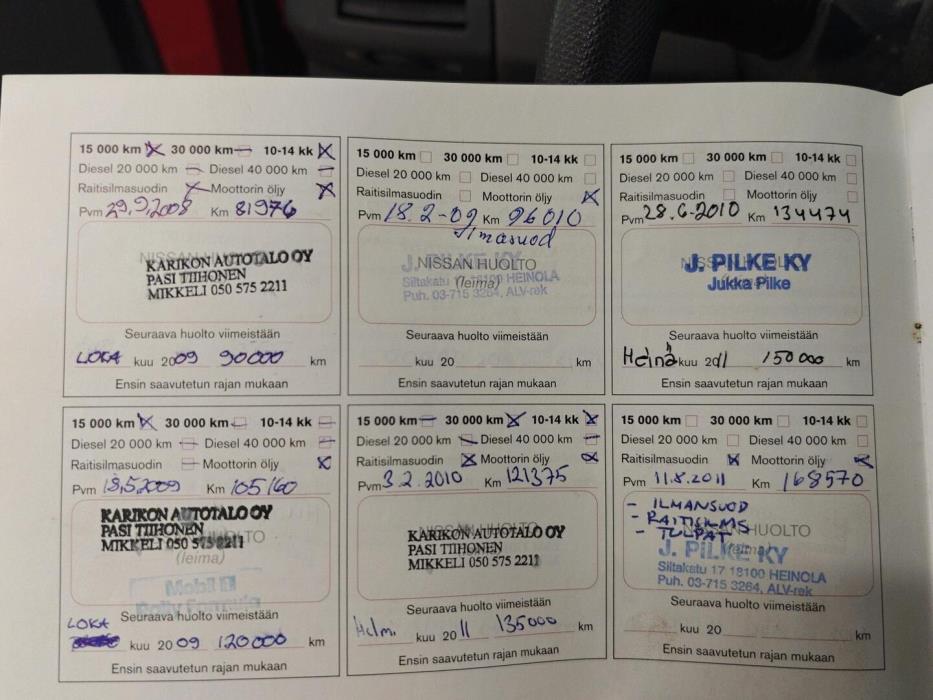 15 000 km 30 000 km 10-14 kk
Diesel 20 000 km Diesel 40 000 km
Raitisilmasuodin Moottorin öljy
Pvm 29.9.2008 Km 81976
NISSAN HUOLTO
KARIKON AUTOTALO OY
PASI TIIHONEN
MIKKELI 050 575 2211
Seuraava huolto viimeistään
LOKA kuu 2009 90000 km
Ensin saavutetun rajan mukaan
15 000 km 30 000 km 10-14 kk
Diesel 20 000 km Diesel 40 000 km
Raitisilmasuodin Moottorin öljy
Pvm 18.2-09 Km 96010
ilmasuod
J. PILKE KY
NISSAN HUOLTO
Siltakatu 17 18100 HEINOLA
(leima)
Puh. 03-715 3264, ALV-rek
Seuraava huolto viimeistään
kuu 20 km
Ensin saavutetun rajan mukaan
15 000 km 30 000 km 10-14 kk
Diesel 20 000 km Diesel 40 000 km
Raitisilmasuodin Moottorin öljy
Pvm 28.6-2010 Km 134474
NISSAN HUOLTO
J. PILKE KY
Jukka Pilke
Seuraava huolto viimeistään
Heinä kuu 2011 150000 km
Ensin saavutetun rajan mukaan
15 000 km 30 000 km 10-14 kk
Diesel 20 000 km Diesel 40 000 km
Raitisilmasuodin Moottorin öljy
Pvm 18.5.2009 Km 105160
KARIKON AUTOTALO OY
PASI TIIHONEN
NISSAN HUOLTO
MIKKELI 050 575 2211
(leima)
Mobil 1
Seuraava huolto viimeistään
LOKA
kuu 2009 120000 km
Ensin saavutetun rajan mukaan
15 000 km 30 000 km 10-14 kk
Diesel 20 000 km Diesel 40 000 km
Raitisilmasuodin Moottorin öljy
Pvm 3.2.2010 Km 121375
NISSAN HUOLTO
KARIKON AUTOTALO OY
PASI TIIHONEN
MIKKELI 050 575 2211
Seuraava huolto viimeistään
Helmi kuu 2011 135000 km
Ensin saavutetun rajan mukaan
15 000 km 30 000 km 10-14 kk
Diesel 20 000 km Diesel 40 000 km
Raitisilmasuodin Moottorin öljy
Pvm 11.8.2011 Km 168570
- ILMANSUOD
- RAITISILMS
NISSAN HUOLTO
- TULPAT
(leima)
J. PILKE KY
Siltakatu 17 18100 HEINOLA
Puh. 03-715 3264, ALV-rek
Seuraava huolto viimeistään
kuu 20 km
Ensin saavutetun rajan mukaan